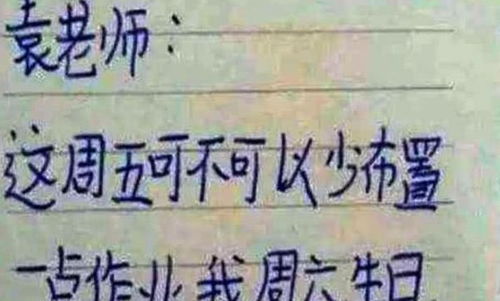 袁老师：
这周五可不可以少布置
一点作业我周六生日